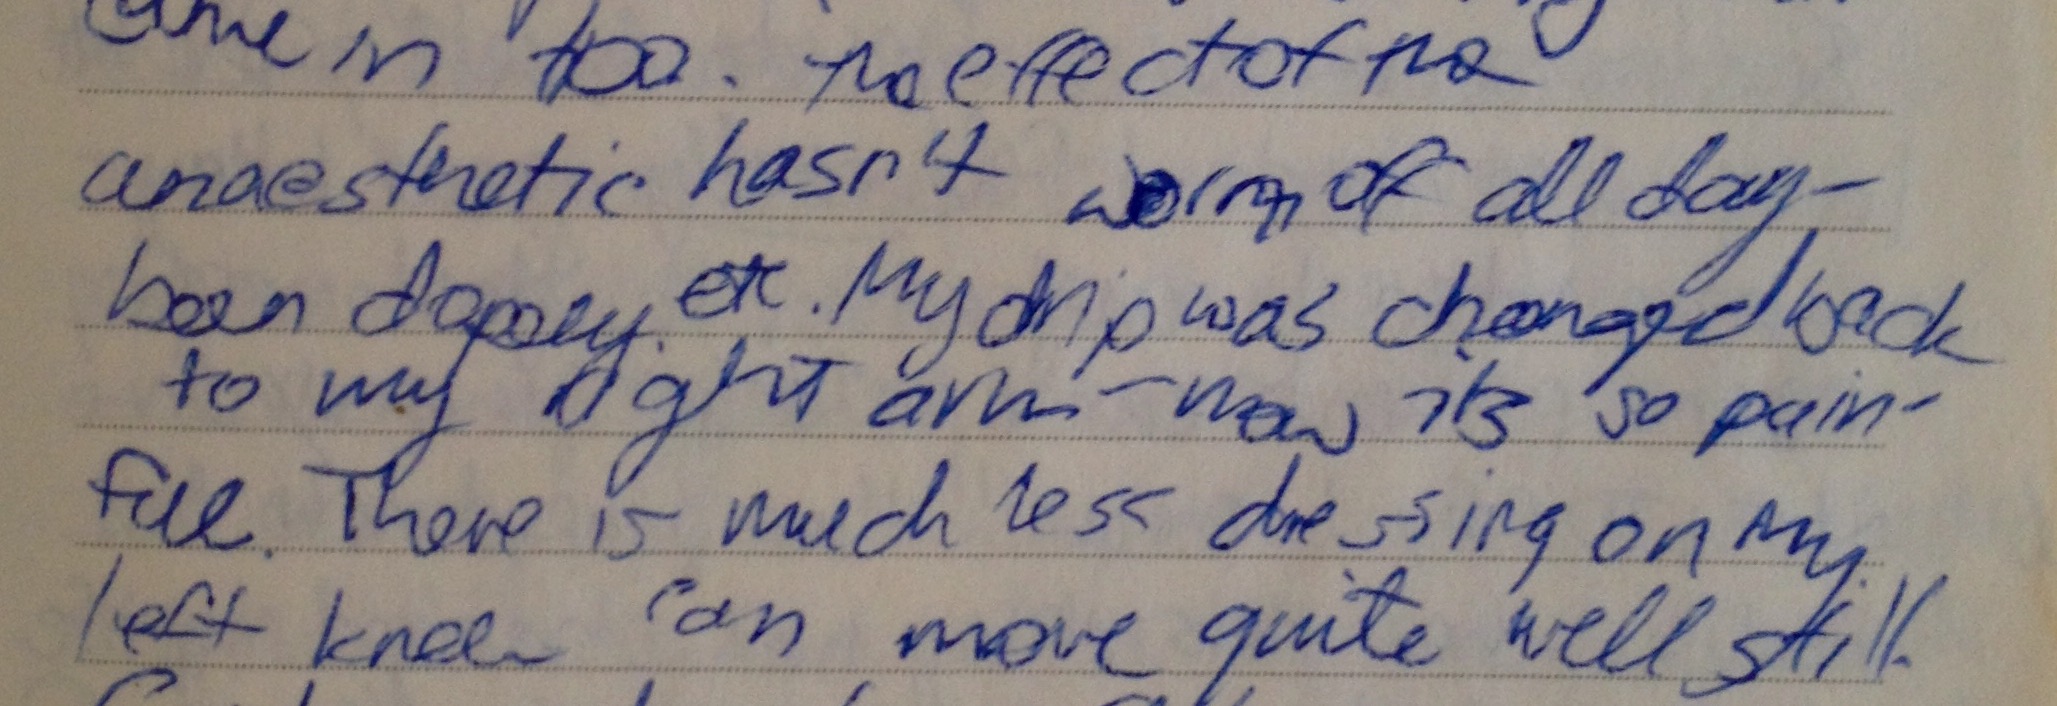 came in too. The effect of the
anaesthetic hasn't worn of all day-
been dopey etc. My drip was changed back
to my right arm - now its so pain-
full. There is much less dressing on my
left knee can move quite well still.